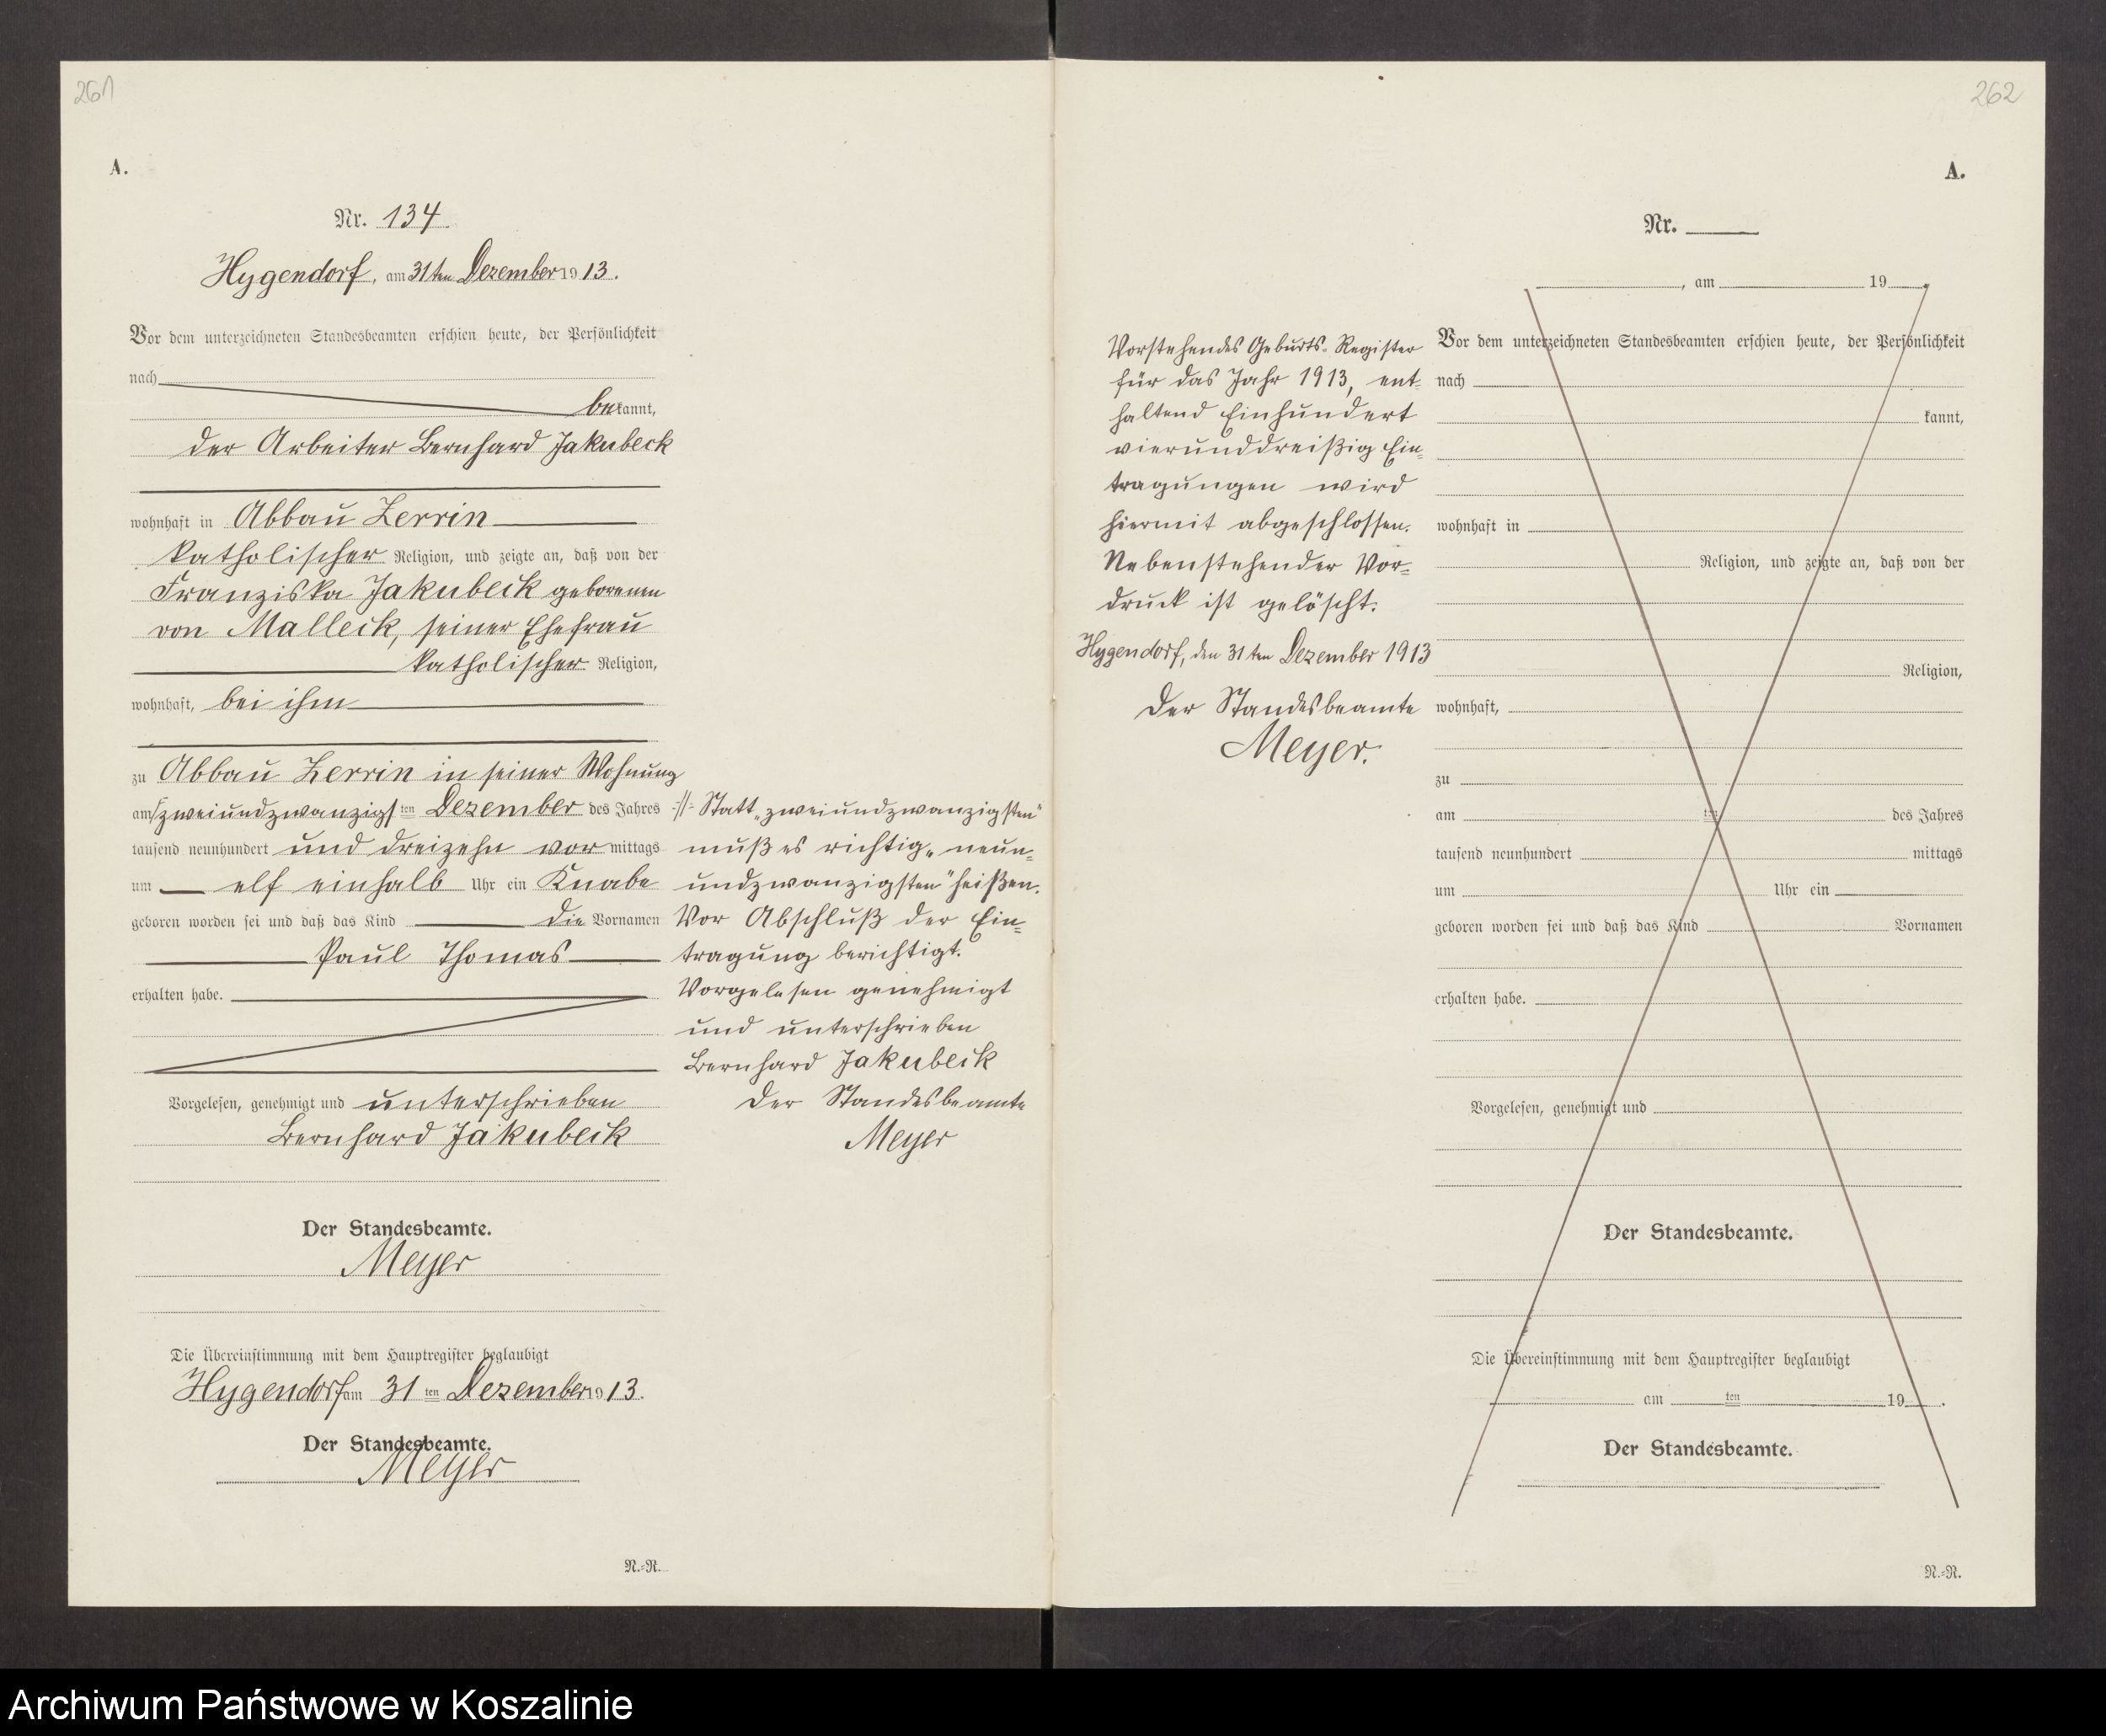 261
A.
Nr. 134.
Hygendorf, am 31ten Dezember 1913.
Vor dem unterzeichneten Standesbeamten erschien heute, der Persönlichkeit
nach
bekannt,
der Arbeiter Bernhard Jakubeck
wohnhaft in Abbau Zerrin
katholischer Religion, und zeigte an, daß von der
Franziska Jakubeck geborenen
von Malleck, seiner Ehefrau
katholischer Religion,
wohnhaft, bei ihm
zu Abbau Zerrin in seiner Wohnung
am zweiundzwanzigsten Dezember des Jahres
tausend neunhundert und dreizehn vormittags
um elf einhalb Uhr ein Knabe
geboren worden sei und daß das Kind die Vornamen
Paul Thomas
erhalten habe.
Vorgelesen, genehmigt und unterschrieben
Bernhard Jakubeck
Der Standesbeamte.
Meyer
Die Übereinstimmung mit dem Hauptregister beglaubigt
Hygendorf am 31ten Dezember 1913.
Der Standesbeamte.
Meyer
N.=N.
-//- Statt „zweiundzwanzigsten"
muß es richtig „neun-
undzwanzigsten" heißen.
Vor Abschluß der Ein-
tragung berichtigt.
Vorgelesen genehmigt
und unterschrieben
Bernhard Jakubeck
Der Standesbeamte
Meyer
262
A.
Nr.
, am 19
Vorstehendes Geburts-Register
für das Jahr 1913, ent-
haltend Einhundert
vierunddreißig Ein-
tragungen wird
hiermit abgeschlossen.
Nebenstehender Vor-
druck ist gelöscht.
Hygendorf, den 31ten Dezember 1913
Der Standesbeamte
Meyer.
Vor dem unterzeichneten Standesbeamten erschien heute, der Persönlichkeit
nach
kannt,
wohnhaft in
Religion, und zeigte an, daß von der
Religion,
wohnhaft,
zu
am ten des Jahres
tausend neunhundert mittags
um Uhr ein
geboren worden sei und daß das Kind Vornamen
erhalten habe.
Vorgelesen, genehmigt und
Der Standesbeamte.
Die Übereinstimmung mit dem Hauptregister beglaubigt
am ten 19 .
Der Standesbeamte.
N.=N.
Archiwum Państwowe w Koszalinie